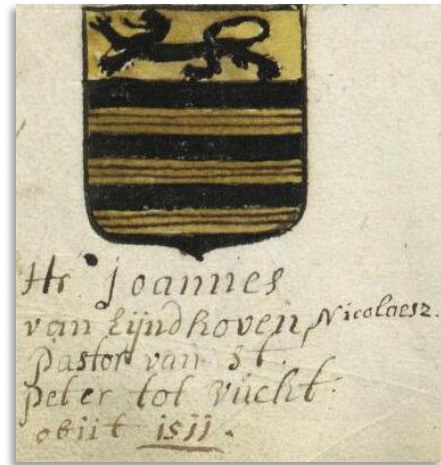 Hr. Joannes
van Eijndhoven, Nicolaesz.
Pastor van St.
peter tot vucht.
obiit 1511.